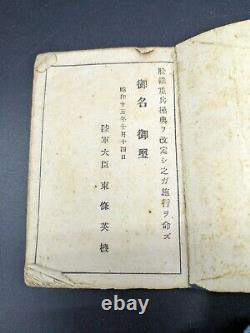 朕輜重兵操典ヲ改定シ之ガ施行ヲ命ズ
御名 御璽
昭和十五年十月十四日
陸軍大臣 東條英機
ebay
176